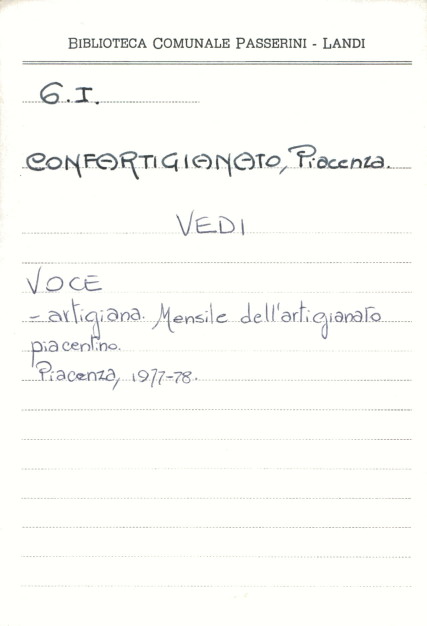 BIBLIOTECA COMUNALE PASSERINI - LANDI
G.I.
CONFARTIGIANATO, Piacenza.
VEDI
VOCE
- artigiana. Mensile dell'artigianato
piacentino.
Piacenza, 1977-78.